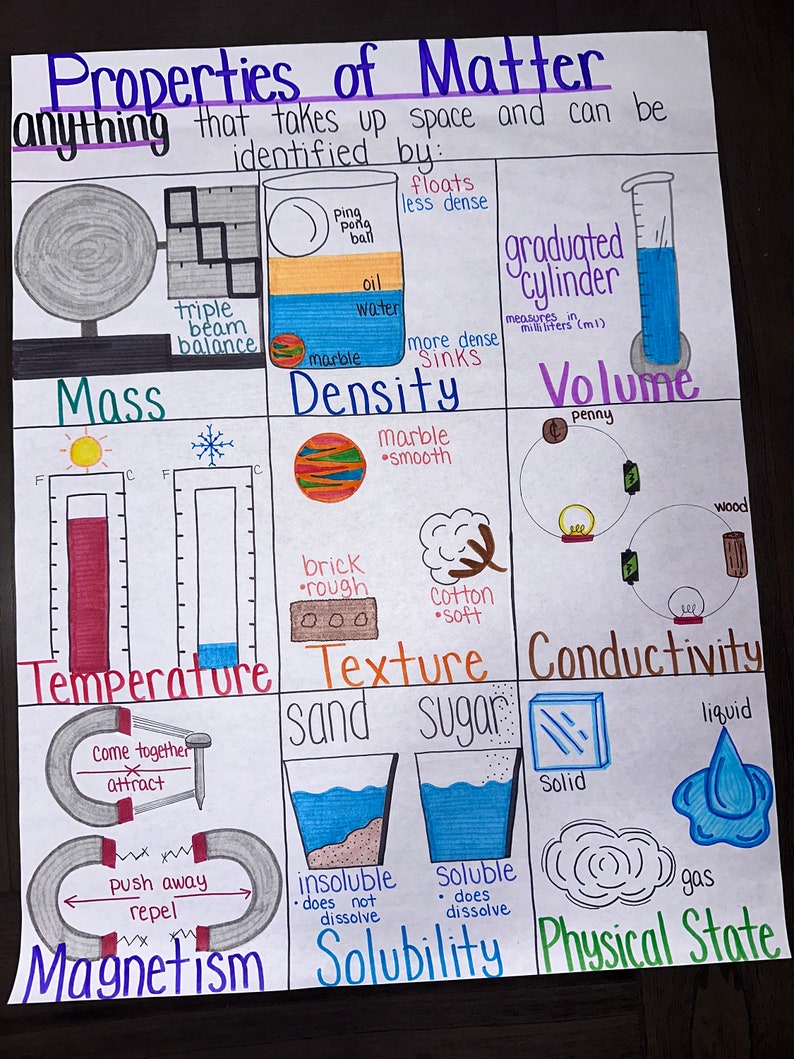 Properties of Matter
anything that takes up space and can be
identified by:
triple
beam
balance
Mass
floats
less dense
ping
pong
ball
oil
water
marble
more dense
sinks
Density
graduated
cylinder
measures in
milliliters (ml)
Volume
F C
F C
Temperature
marble
•smooth
brick
•rough
cotton
•soft
Texture
penny
¢
wood
Conductivity
come together
attract
push away
repel
Magnetism
sand
sugar
insoluble
• does not
dissolve
Soluble
• does
dissolve
Solubility
Solid
liquid
gas
Physical State